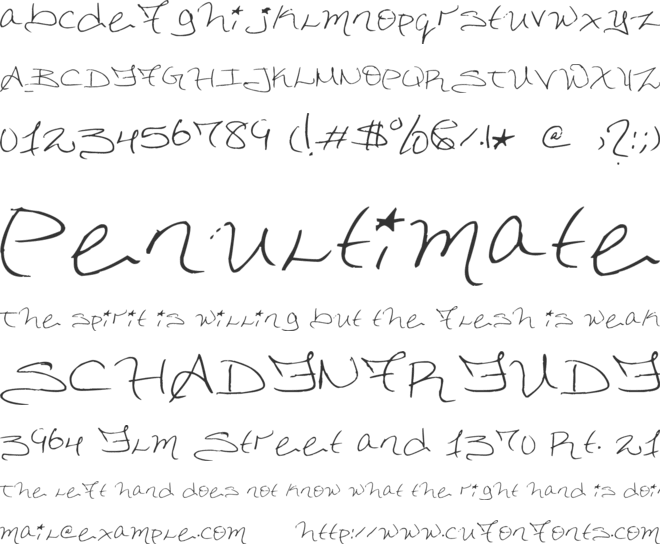 abcdefghijklmnopqrstuvwxyz
ABCDEFGHIJKLMNOPQRSTUVWXYZ
0123456789 (!#$%&/.|* @ ,?:;)
Penultimate
The spirit is willing but the flesh is weak
SCHADENFREUDE
3964 Elm Street and 1370 Rt. 21
The left hand does not know what the right hand is doi
mail@example.com http://www.cufonfonts.com